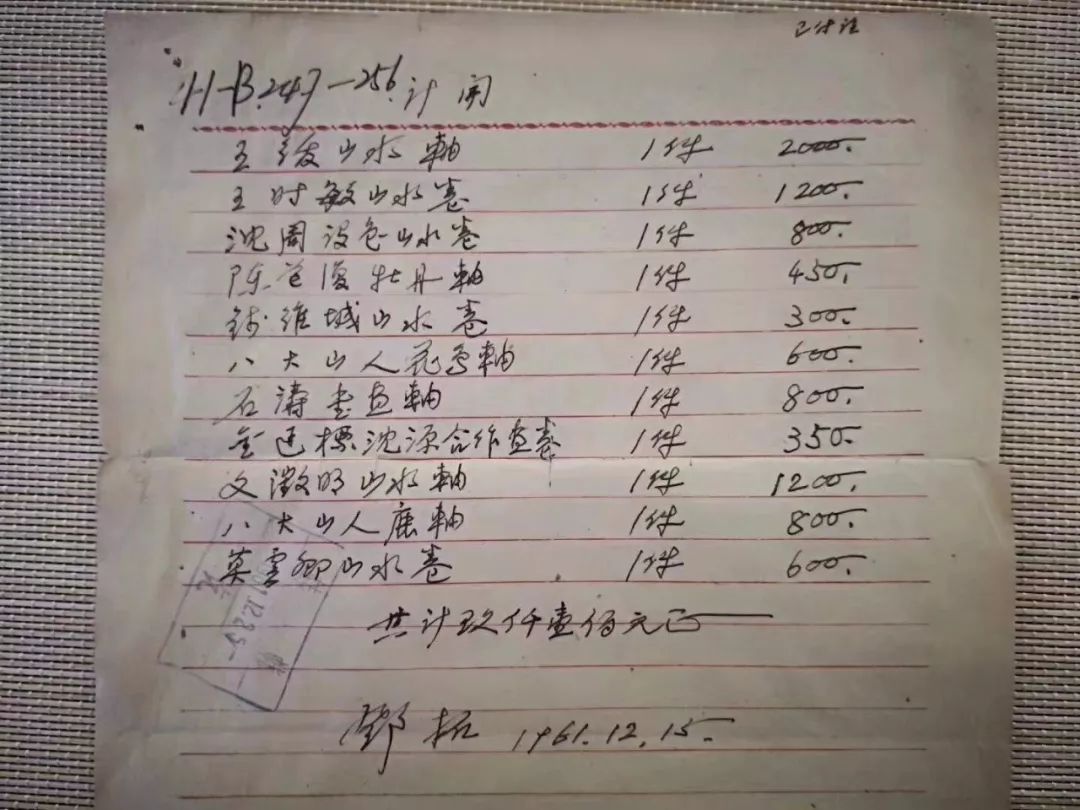 已付讫
H-B.247-256. 计开
王绂山水軸 1件 2000.
王时敏山水卷 1件 1200.
沈周设色山水卷 1件 800.
陈道復牡丹軸 1件 450.
钱维城山水卷 1件 300.
八大山人花鸟軸 1件 600.
石濤画軸 1件 800.
金廷標沈源合作畫卷 1件 350.
文徵明山水軸 1件 1200.
八大山人鹿軸 1件 800.
莫雲卿山水卷 1件 600.
共计玖仟壹佰元正
鄧拓 1961.12.15.
1961.12.25